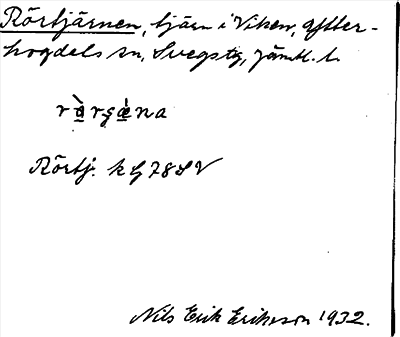 Rörtjärnen, tjärn i Viken, Ytter-
hogdals sn, Svegs tg, Jämtl. l.
rɑ̀rgɑ́na
Rörtj. k G 78 S V
Nils Erik Eriksson 1932.